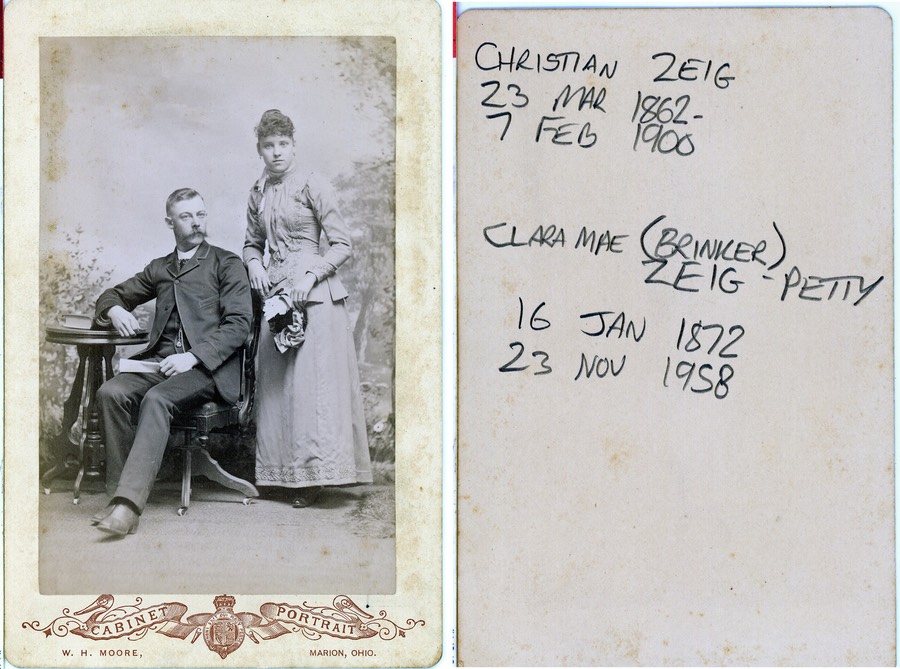 CABINET PORTRAIT
W. H. MOORE, MARION, OHIO.
CHRISTIAN ZEIG
23 MAR 1862-
7 FEB 1900
CLARA MAE (BRINKER)
ZEIG-PETTY
16 JAN 1872
23 NOV 1958